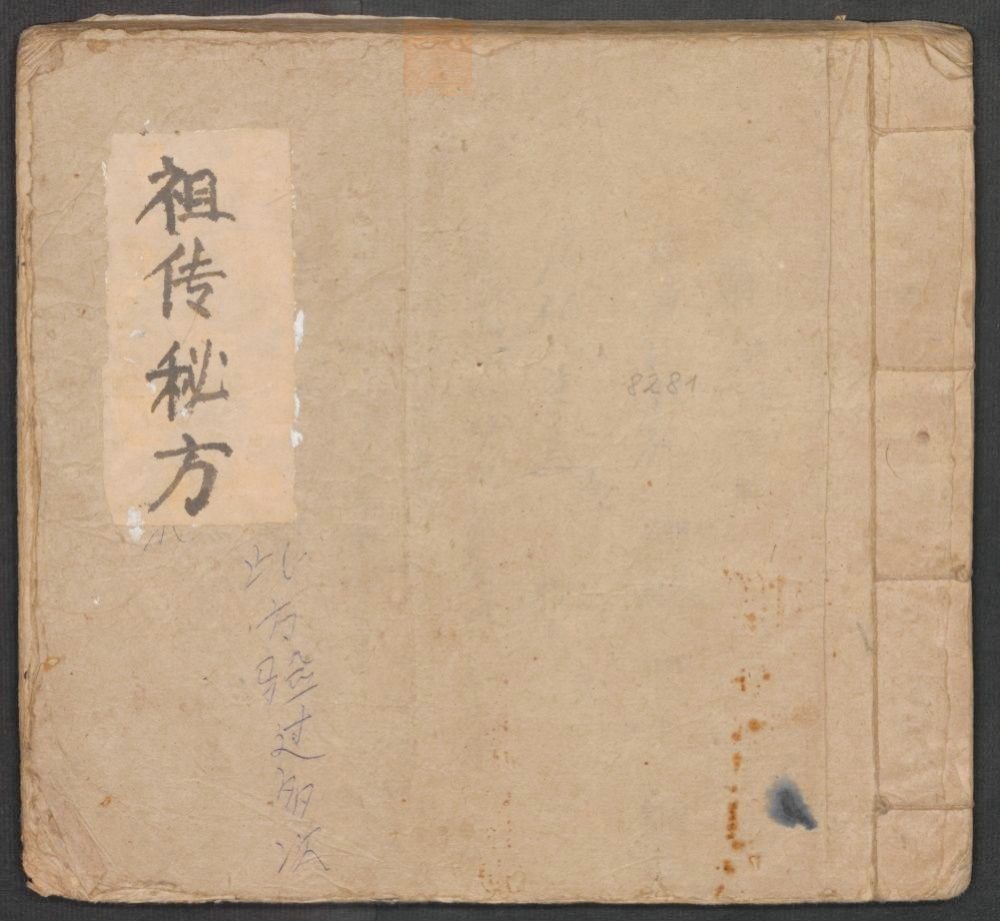 祖传秘方
此方验过
8281